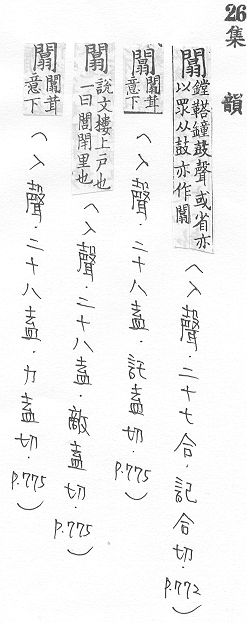 26 集韻
闒 鏜鞳鐘鼓聲或省亦
以眾从鼓亦作闒
(入聲.二十七合,記合切.P.772)
闒 闒茸
意下
(入聲.二十八盍.託盍切.P.775)
闒 說文樓上戶也
一曰閭閈里也
(入聲.二十八盍.敵盍切.P.775)
闒 闒茸
意下
(入聲.二十八盍.力盍切.P.775)